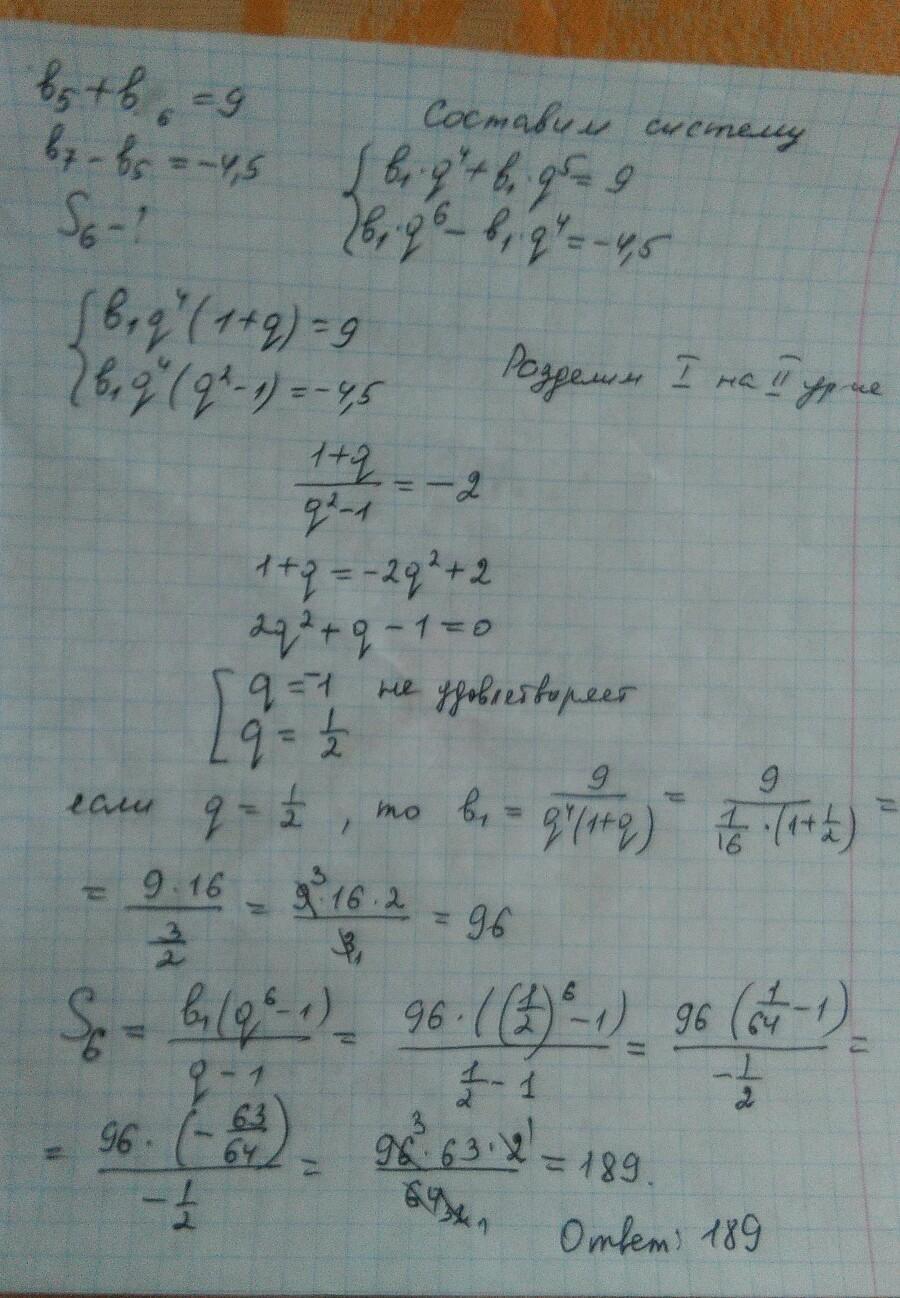 b₅ + b₆ = 9
b₇ - b₅ = -4,5
S₆ - ?
Составим систему
{ b₁·q⁴ + b₁·q⁵ = 9
b₁·q⁶ - b₁·q⁴ = -4,5
{ b₁q⁴(1+q) = 9
b₁q⁴(q²-1) = -4,5
Розделим I на II ур-ие
(1+q)/(q²-1) = -2
1+q = -2q²+2
2q²+q-1=0
[ q = -1 не удовлетворяет
q = 1/2
если q = 1/2, то b₁ = 9/(q⁴(1+q)) = 9/(1/16·(1+1/2)) =
= (9·16)/(3/2) = (9³·16·2)/(3₁) = 96
S₆ = b₁(q⁶-1)/(q-1) = 96·((1/2)⁶-1)/(1/2-1) = 96(1/64-1)/(-1/2) =
= 96·(-63/64)/(-1/2) = (96³·63·2¹)/(64 32 ₁) = 189.
Ответ: 189